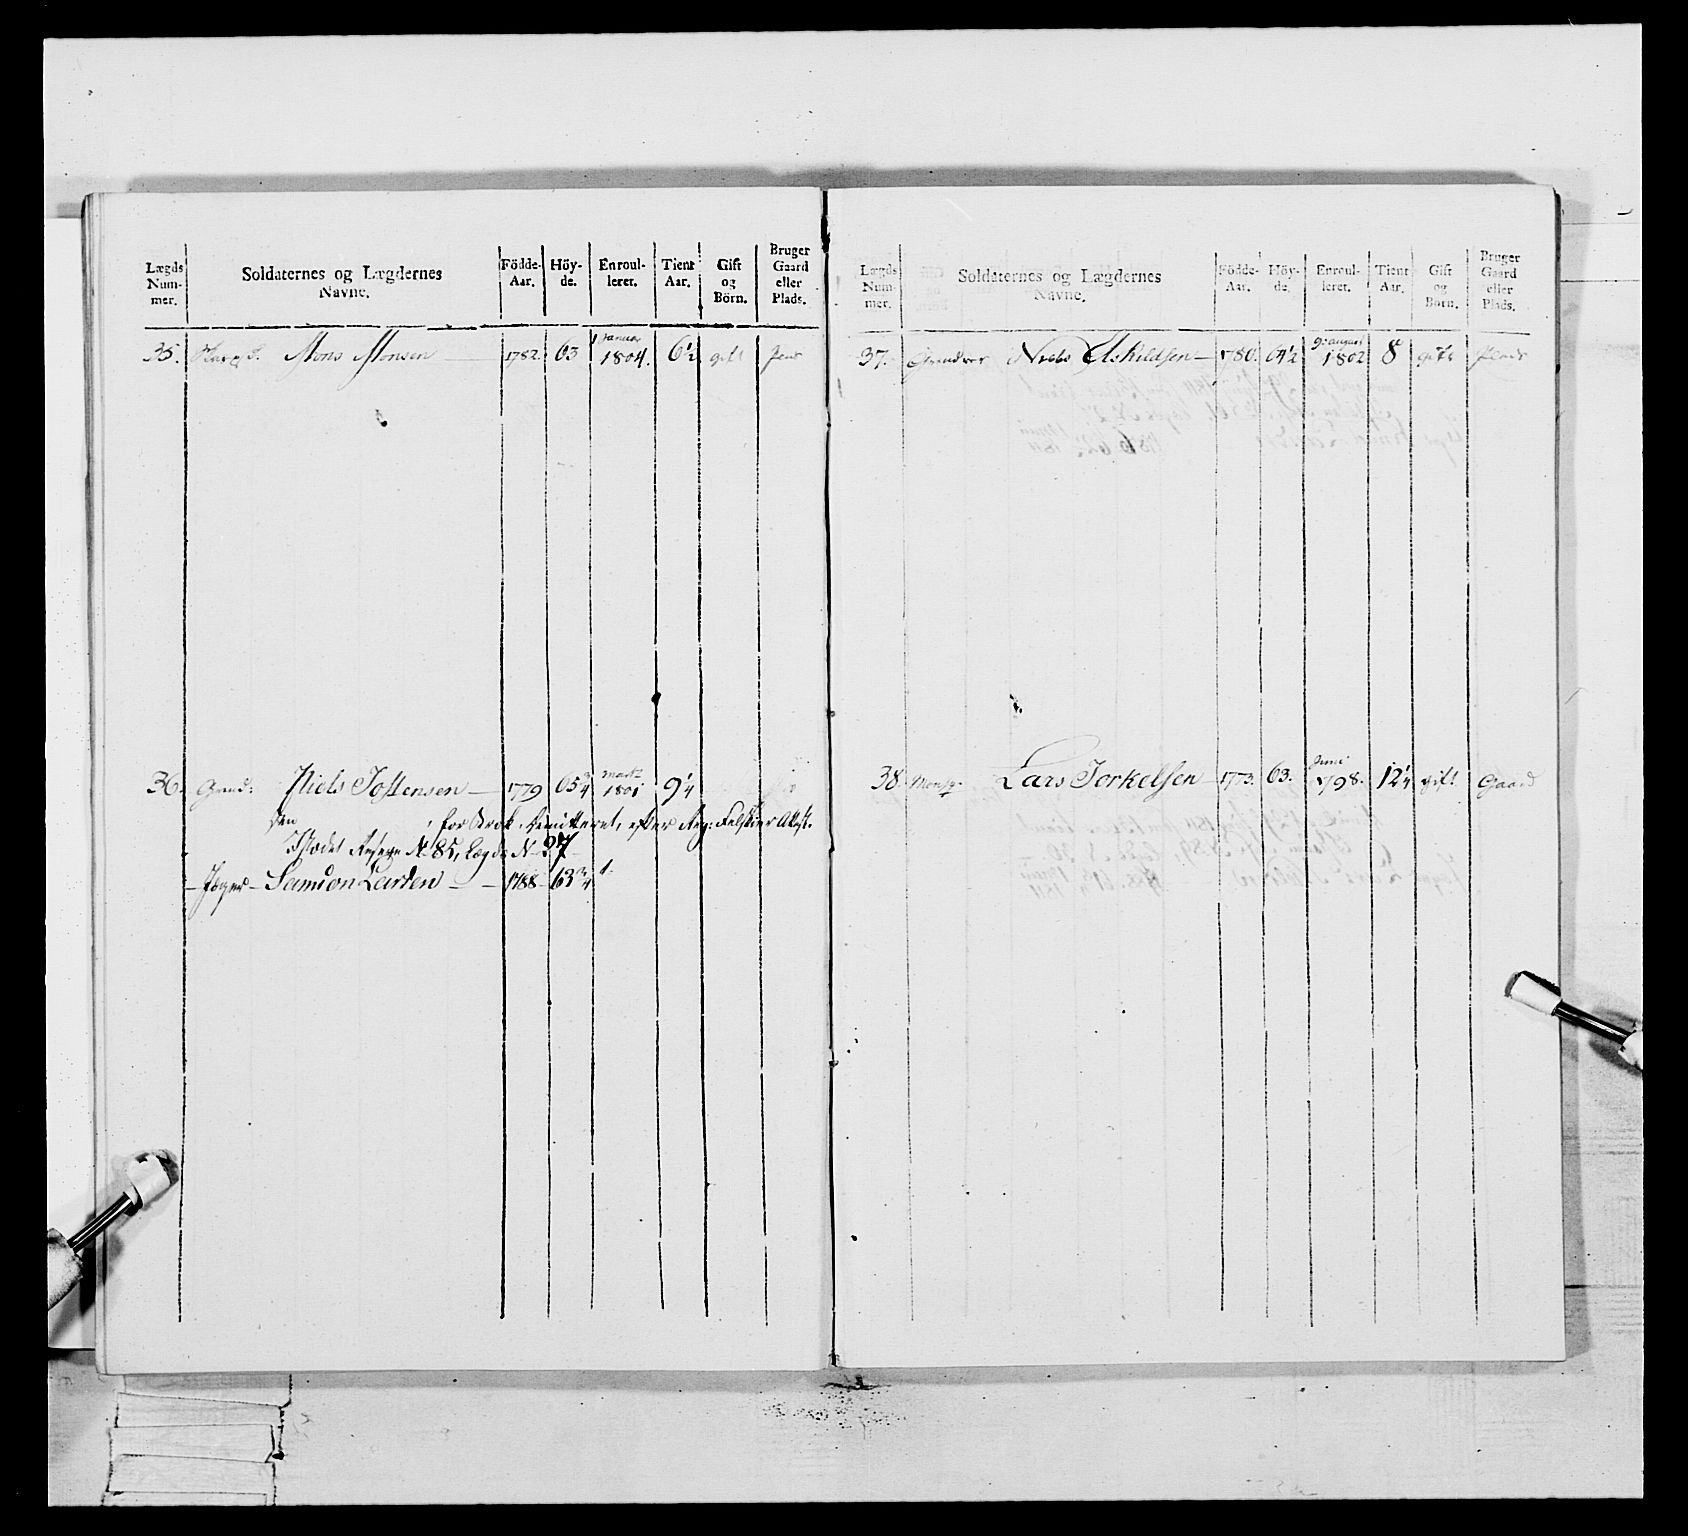 Lægds Num- mer. Soldaternes og Lægdernes Navne. Födde- Aar. Höy- de. Enroul- leret. Tient Aar. Gift og Börn. Bruger Gaard eller Plads.
35. Mons Monsen 1782. 63 1 Januar 1804. 6½ gift
36. Grend: Niels Jostensen 1779 65¾ Martz 1801 9¼
den for Brok dimitteret, efter Reg: Feltskier Attest.
Istædet Reserve N 85, Lægds N 37
Jæger Samson Larsen 1788 63¾
Lægds Num- mer. Soldaternes og Lægdernes Navne. Födde- Aar. Höy- de. Enroul- leret. Tient Aar. Gift og Börn. Bruger Gaard eller Plads.
37. Niels Askildsen 1780. 64½ 9: august 1802 8 gift Plads
38. Lars Torkelsen 1773. 63. Juni 1798. 12¼ gift Gaard